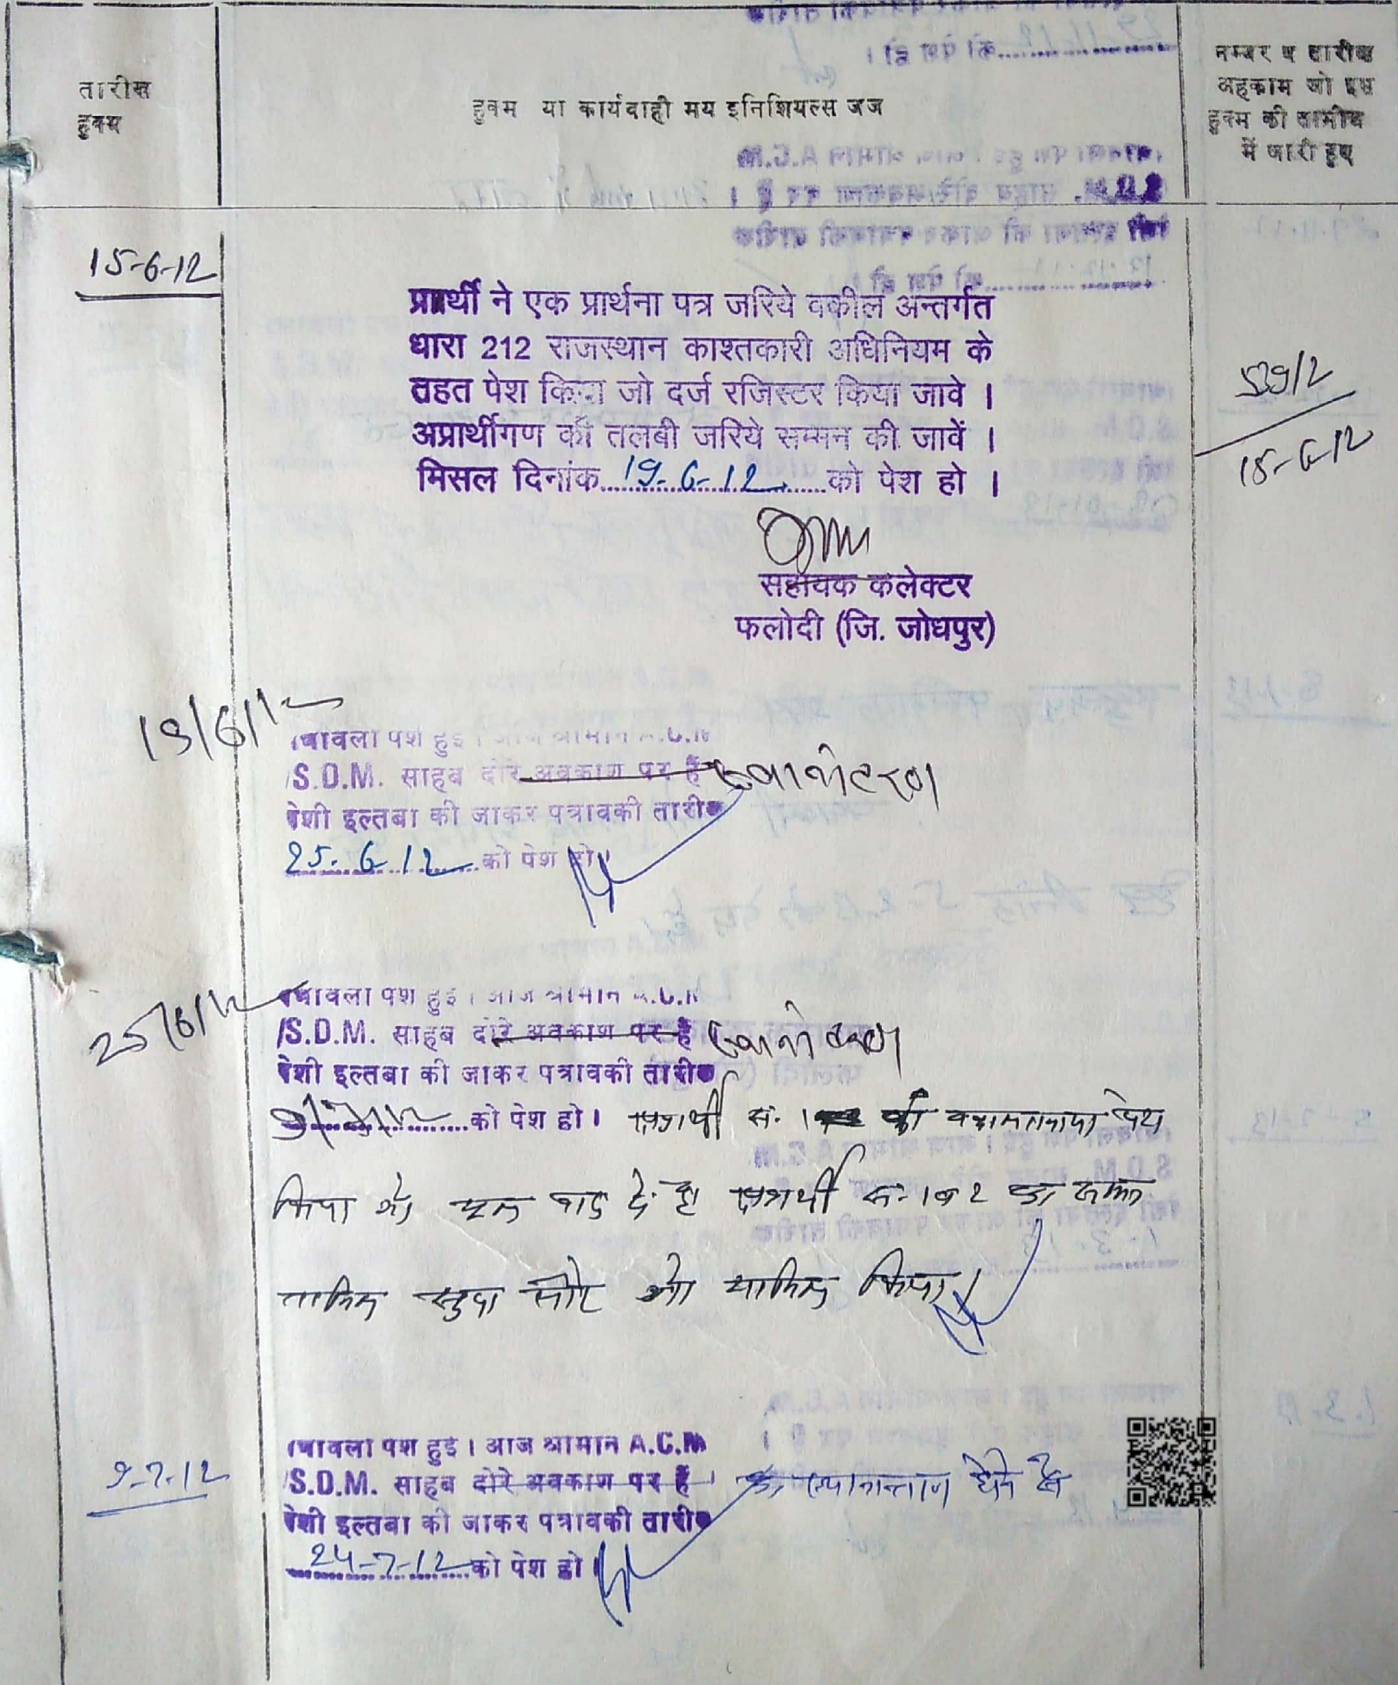 तारीख
हुक्म
हुक्म या कार्यवाही मय इनिशियल्स जज
नम्बर व तारीख
अहकाम जो इस
हुक्म की तामील
में जारी हुए
15-6-12
प्रार्थी ने एक प्रार्थना पत्र जरिये वकील अन्तर्गत
धारा 212 राजस्थान काश्तकारी अधिनियम के
तहत पेश किया जो दर्ज रजिस्टर किया जावे ।
अप्रार्थीगण की तलबी जरिये सम्मन की जावें ।
मिसल दिनांक 19-6-12 को पेश हो ।
539/2
15-6-12
सहायक कलेक्टर
फलोदी (जि. जोधपुर)
19/6/12
पत्रावली पेश हुई । आज श्रीमान A.C.M
/S.D.M. साहब दोरे अवकाश पर हैं
पेशी इल्तबा की जाकर पत्रावकी तारीख
25-6-12 को पेश हो ।
25/6/12
पत्रावली पेश हुई । आज श्रीमान A.C.M
/S.D.M. साहब दोरे अवकाश पर हैं
पेशी इल्तबा की जाकर पत्रावकी तारीख
9/7/12 को पेश हो । अप्रार्थी सं. 1 की वकालतनामा पेश
किया अप्रार्थी सं. 1 व 2
तामिल सुदा किया ।
9-7-12
पत्रावली पेश हुई । आज श्रीमान A.C.M
/S.D.M. साहब दोरे अवकाश पर हैं । का स्थानान्तरण होने से
पेशी इल्तबा की जाकर पत्रावकी तारीख
24-7-12 को पेश हो ।